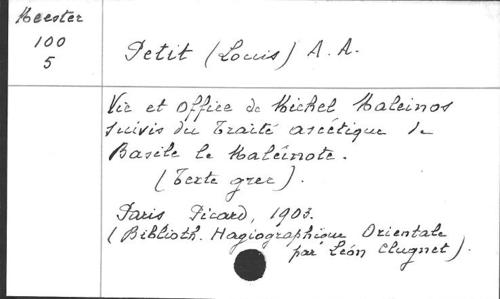 Meester
100
5
Petit (Louis) A. A.
Vie et Office de Michel Maleinos
suivis du Traité ascétique de
Basile le Maléinote.
(Texte grec).
Paris Picard, 1903.
(Biblioth. Hagiographique Orientale
par Léon Clugnet).